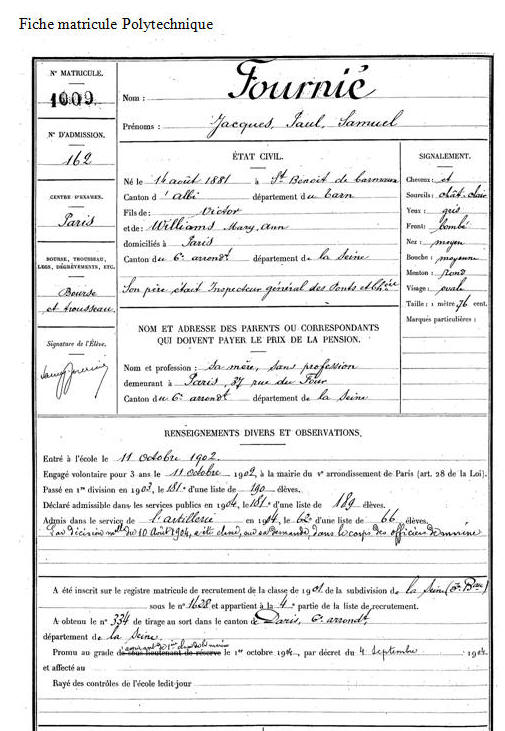 Fiche matricule Polytechnique
N° MATRICULE.
1609.
Nom : Fournié
Prénoms : Jacques, Paul, Samuel
N° D'ADMISSION.
162
CENTRE D'EXAMEN.
Paris
BOURSE, TROUSSEAU, LEGS, DÉGRÈVEMENTS, ETC.
Bourse
et trousseau
Signature de l'Élève.
ÉTAT CIVIL.
Né le 14 août 1881 à St Benoit de Carmaux
Canton d'Albi département du Tarn
Fils de : Victor
et de : Williams Mary, Ann
domiciliés à Paris
Canton du 6e arrondt département de la Seine
Son père était Inspecteur général des Ponts et Chées
NOM ET ADRESSE DES PARENTS OU CORRESPONDANTS
QUI DOIVENT PAYER LE PRIX DE LA PENSION.
Nom et profession : sa mère, sans profession
demeurant à Paris, 37 rue du Four
Canton du 6e arrondt département de la Seine
SIGNALEMENT.
Cheveux : et
Sourcils : chât-clair
Yeux : gris
Front : bombé
Nez : moyen
Bouche : moyenne
Menton : rond
Visage : ovale
Taille : 1 mètre 76 cent.
Marques particulières :
RENSEIGNEMENTS DIVERS ET OBSERVATIONS.
Entré à l'école le 11 octobre 1902.
Engagé volontaire pour 3 ans le 11 octobre 1902, à la mairie du Ve arrondissement de Paris (art. 28 de la Loi).
Passé en 1re division en 1903, le 181e d'une liste de 190 élèves.
Déclaré admissible dans les services publics en 1904, le 181e d'une liste de 189 élèves.
Admis dans le service de l'artillerie en 1904, le 62e d'une liste de 66 élèves.
Par décision mlle du 10 Août 1904, a été classé, sur sa demande, dans le corps des officiers de marine
A été inscrit sur le registre matricule de recrutement de la classe de 1901 de la subdivision de la Seine (6e Bau)
sous le n° 1628 et appartient à la 4e partie de la liste de recrutement.
A obtenu le n° 334 de tirage au sort dans le canton de Paris, 6e arrondt,
département de la Seine.
Promu au grade d'aspirant de 1re classe de la marine de sous-lieutenant de réserve le 1er octobre 1904, par décret du 4 Septembre 1904
et affecté au
Rayé des contrôles de l'école ledit jour